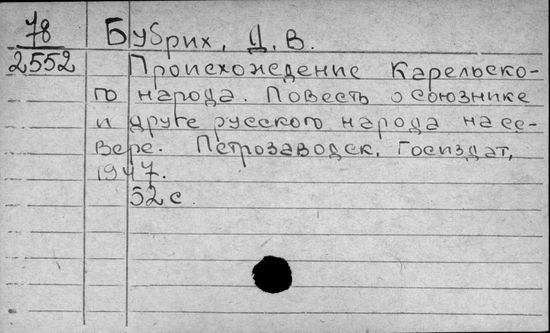 78
2552
Бубрих, Д. В.
Происхождение Карельско-
го народа. Повесть о союзнике
и друге русского народа на се-
вере. Петрозаводск, Госиздат,
1947.
52 с.